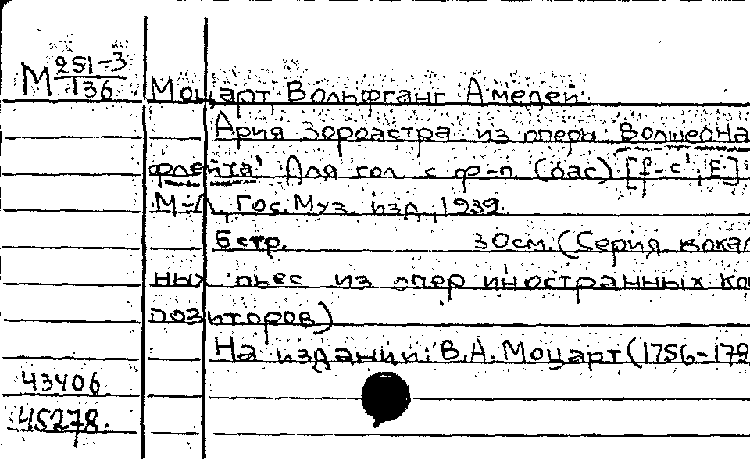 М 251-3/136
Моцарт Вольфганг Амедей.
Ария Зороастра из оперы "Волшебна
флейта" Для гол. с ф-п. (бас) [f-c', E]
М-Л, Гос. Муз. изд., 1939.
6 стр. 30см. (Серия вокаль
ных пьес из опер иностранных ком
позиторов)
На издании: В.А. Моцарт (1756-179
43406
45278.